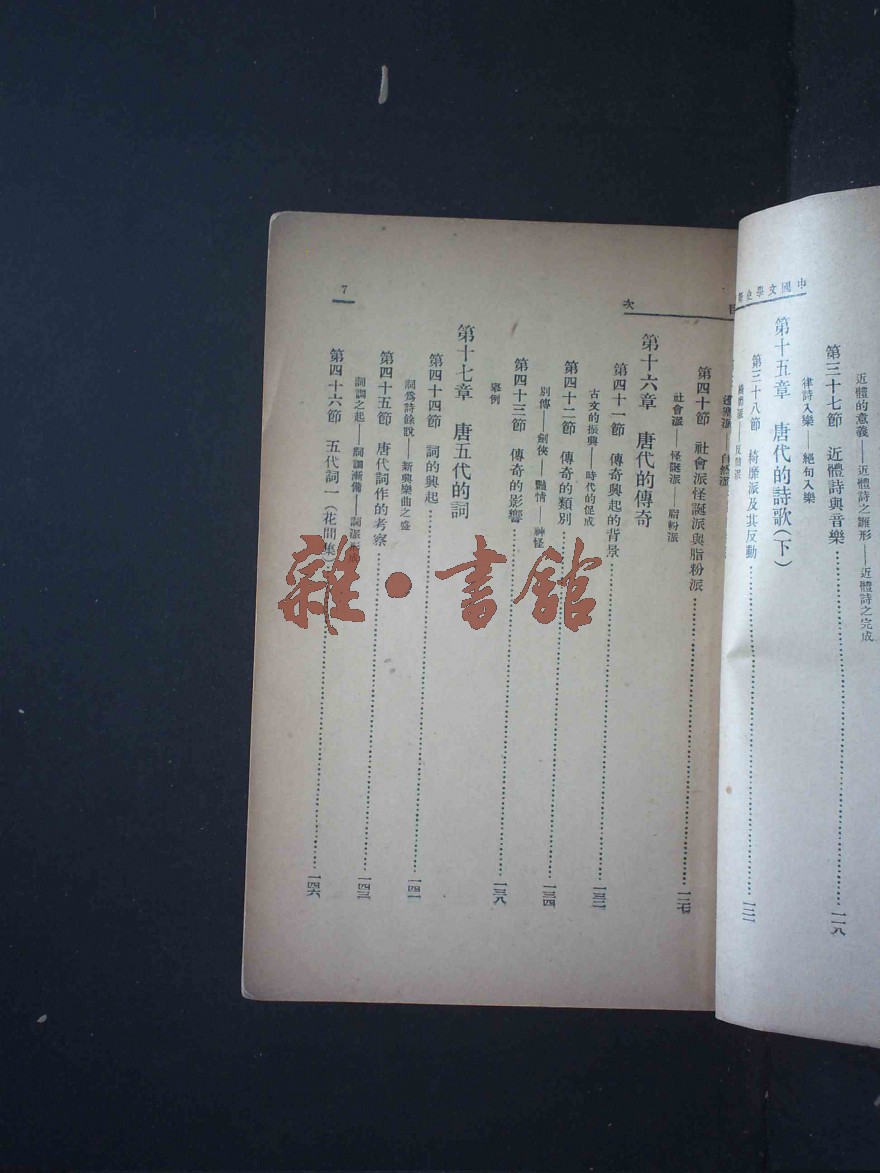 中國文學史
近體的意義——近體詩之雛形——近體詩之完成
第三十七節 近體詩與音樂……一一八
律詩入樂——絕句入樂
第十五章 唐代的詩歌(下)
第三十八節 綺靡派及其反動……一二一
目次
第四十節 社會派怪誕派與脂粉派……一二七
社會派——怪誕派——脂粉派
第十六章 唐代的傳奇
第四十一節 傳奇興起的背景……一三二
古文的振興——時代的促成
第四十二節 傳奇的類別……一三四
別傳——劍俠——豔情——神怪
第四十三節 傳奇的影響……一三八
舉例
第十七章 唐五代的詞
第四十四節 詞的興起……一四一
詞爲詩餘說——新興樂曲之盛
第四十五節 唐代詞作的考察……一四三
詞調之起——詞調漸備——詞派形成
第四十六節 五代詞一(花間集)……一四六
7
雜·書館